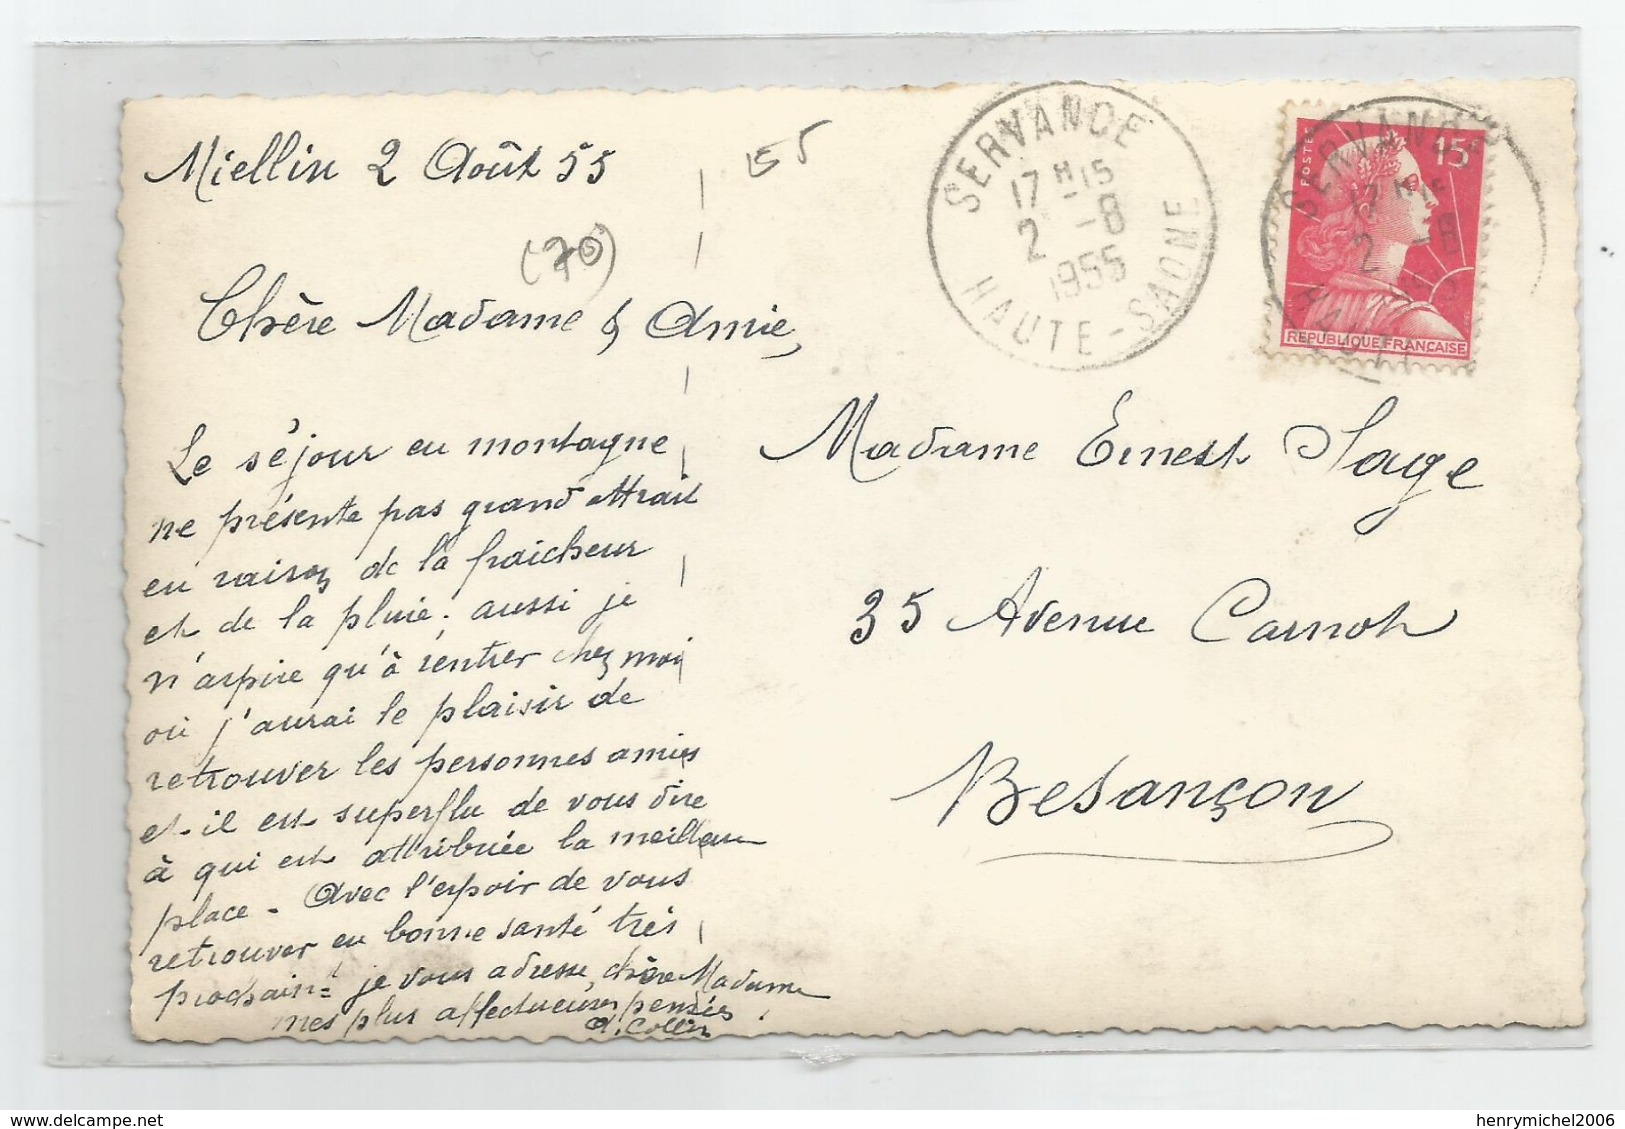 Miellin 2 Août 55
55
(70)
Chère Madame & Amie,
Le séjour en montagne
ne présente pas grand attrait
en raison de la fraicheur
et de la pluie. aussi je
n'aspire qu'à rentrer chez moi
où j'aurai le plaisir de
retrouver les personnes amies
et il est superflu de vous dire
à qui est attribuée la meilleure
place - Avec l'espoir de vous
retrouver en bonne santé très
prochaint je vous adresse, chère Madame
mes plus affectueuses pensées.
A. Collin
SERVANCE
17 H 15
2 -8
1955
HAUTE-SAONE
SERVANCE
17 H 15
2 -8
POSTES
15F
REPUBLIQUE FRANÇAISE
Madame Ernest Sage
35 Avenue Carnot
Besançon
henrymichel2006